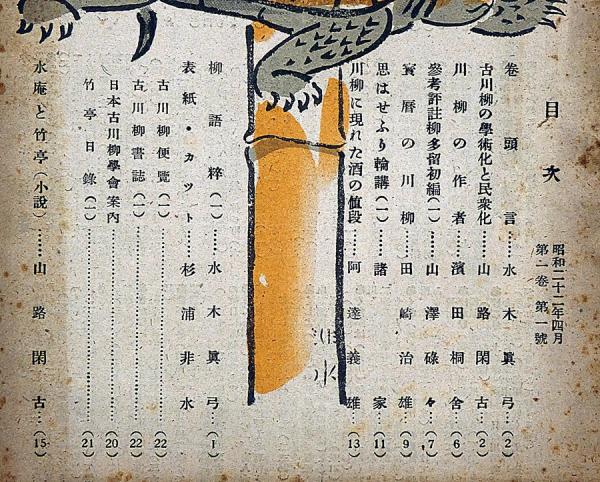 目次
昭和二十二年四月
第一卷 第一號
卷頭言……水木眞弓…(2)
古川柳の學術化と民衆化……山路閑古…(2)
川柳の作者……濱田桐舍…(6)
參考評註柳多留初編(一)……山澤碌々…(7)
寳曆の川柳……田崎治雄…(9)
思はせふり輪講(一)……諸家…(11)
川柳に現れた酒の値段……阿達義雄…(13)
柳語粹(一)……水木眞弓…(1)
表紙・カット……杉浦非水
古川柳便覽(一)……(22)
古川柳書誌(一)……(22)
日本古川柳學會案内……(20)
竹亭日錄(一)……(21)
水庵と竹亭(小説)……山路閑古…(15)